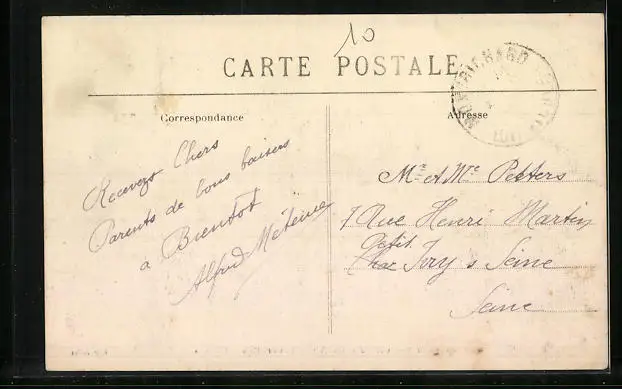 10
CARTE POSTALE
MONTRICHARD
Correspondance
Adresse
Recevez Chers
Parents de bons baisers
a Bientot
Alfred
Mr et Mme Peeters
7 Rue Henri Martin
Petit
Ivry s Seine
Seine